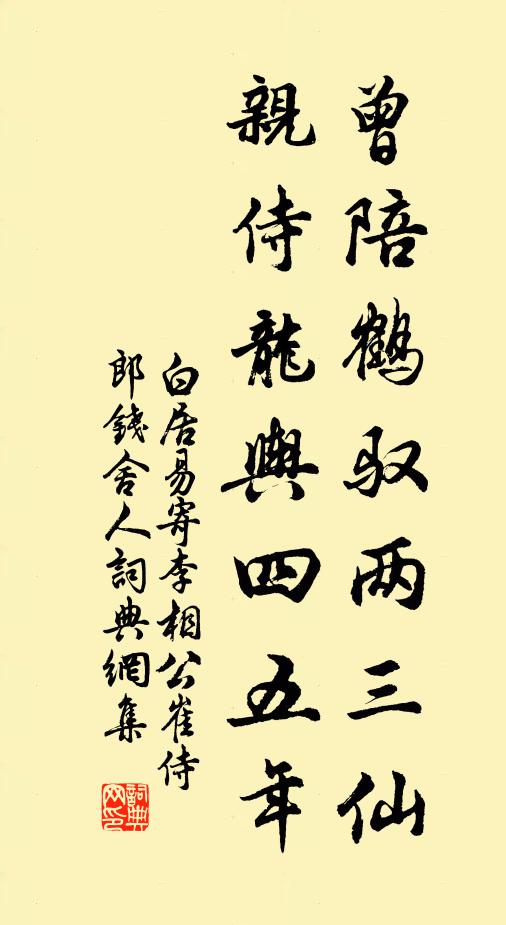 曾陪鶴驭两三仙
親侍龍輿四五年
白居易寄李相公崔侍
郎錢舍人詞典網集
詞典網印